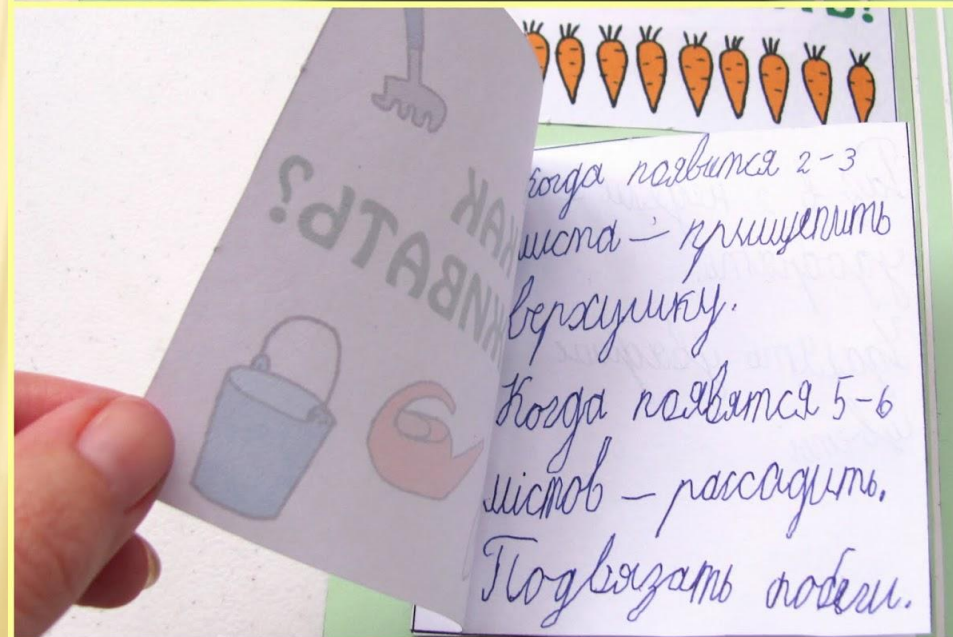 КАК
ЖИВАТЬ?
Когда появится 2-3
листа - прищепить
верхушку.
Когда появятся 5-6
листов - рассадить.
Подвязать побеги.